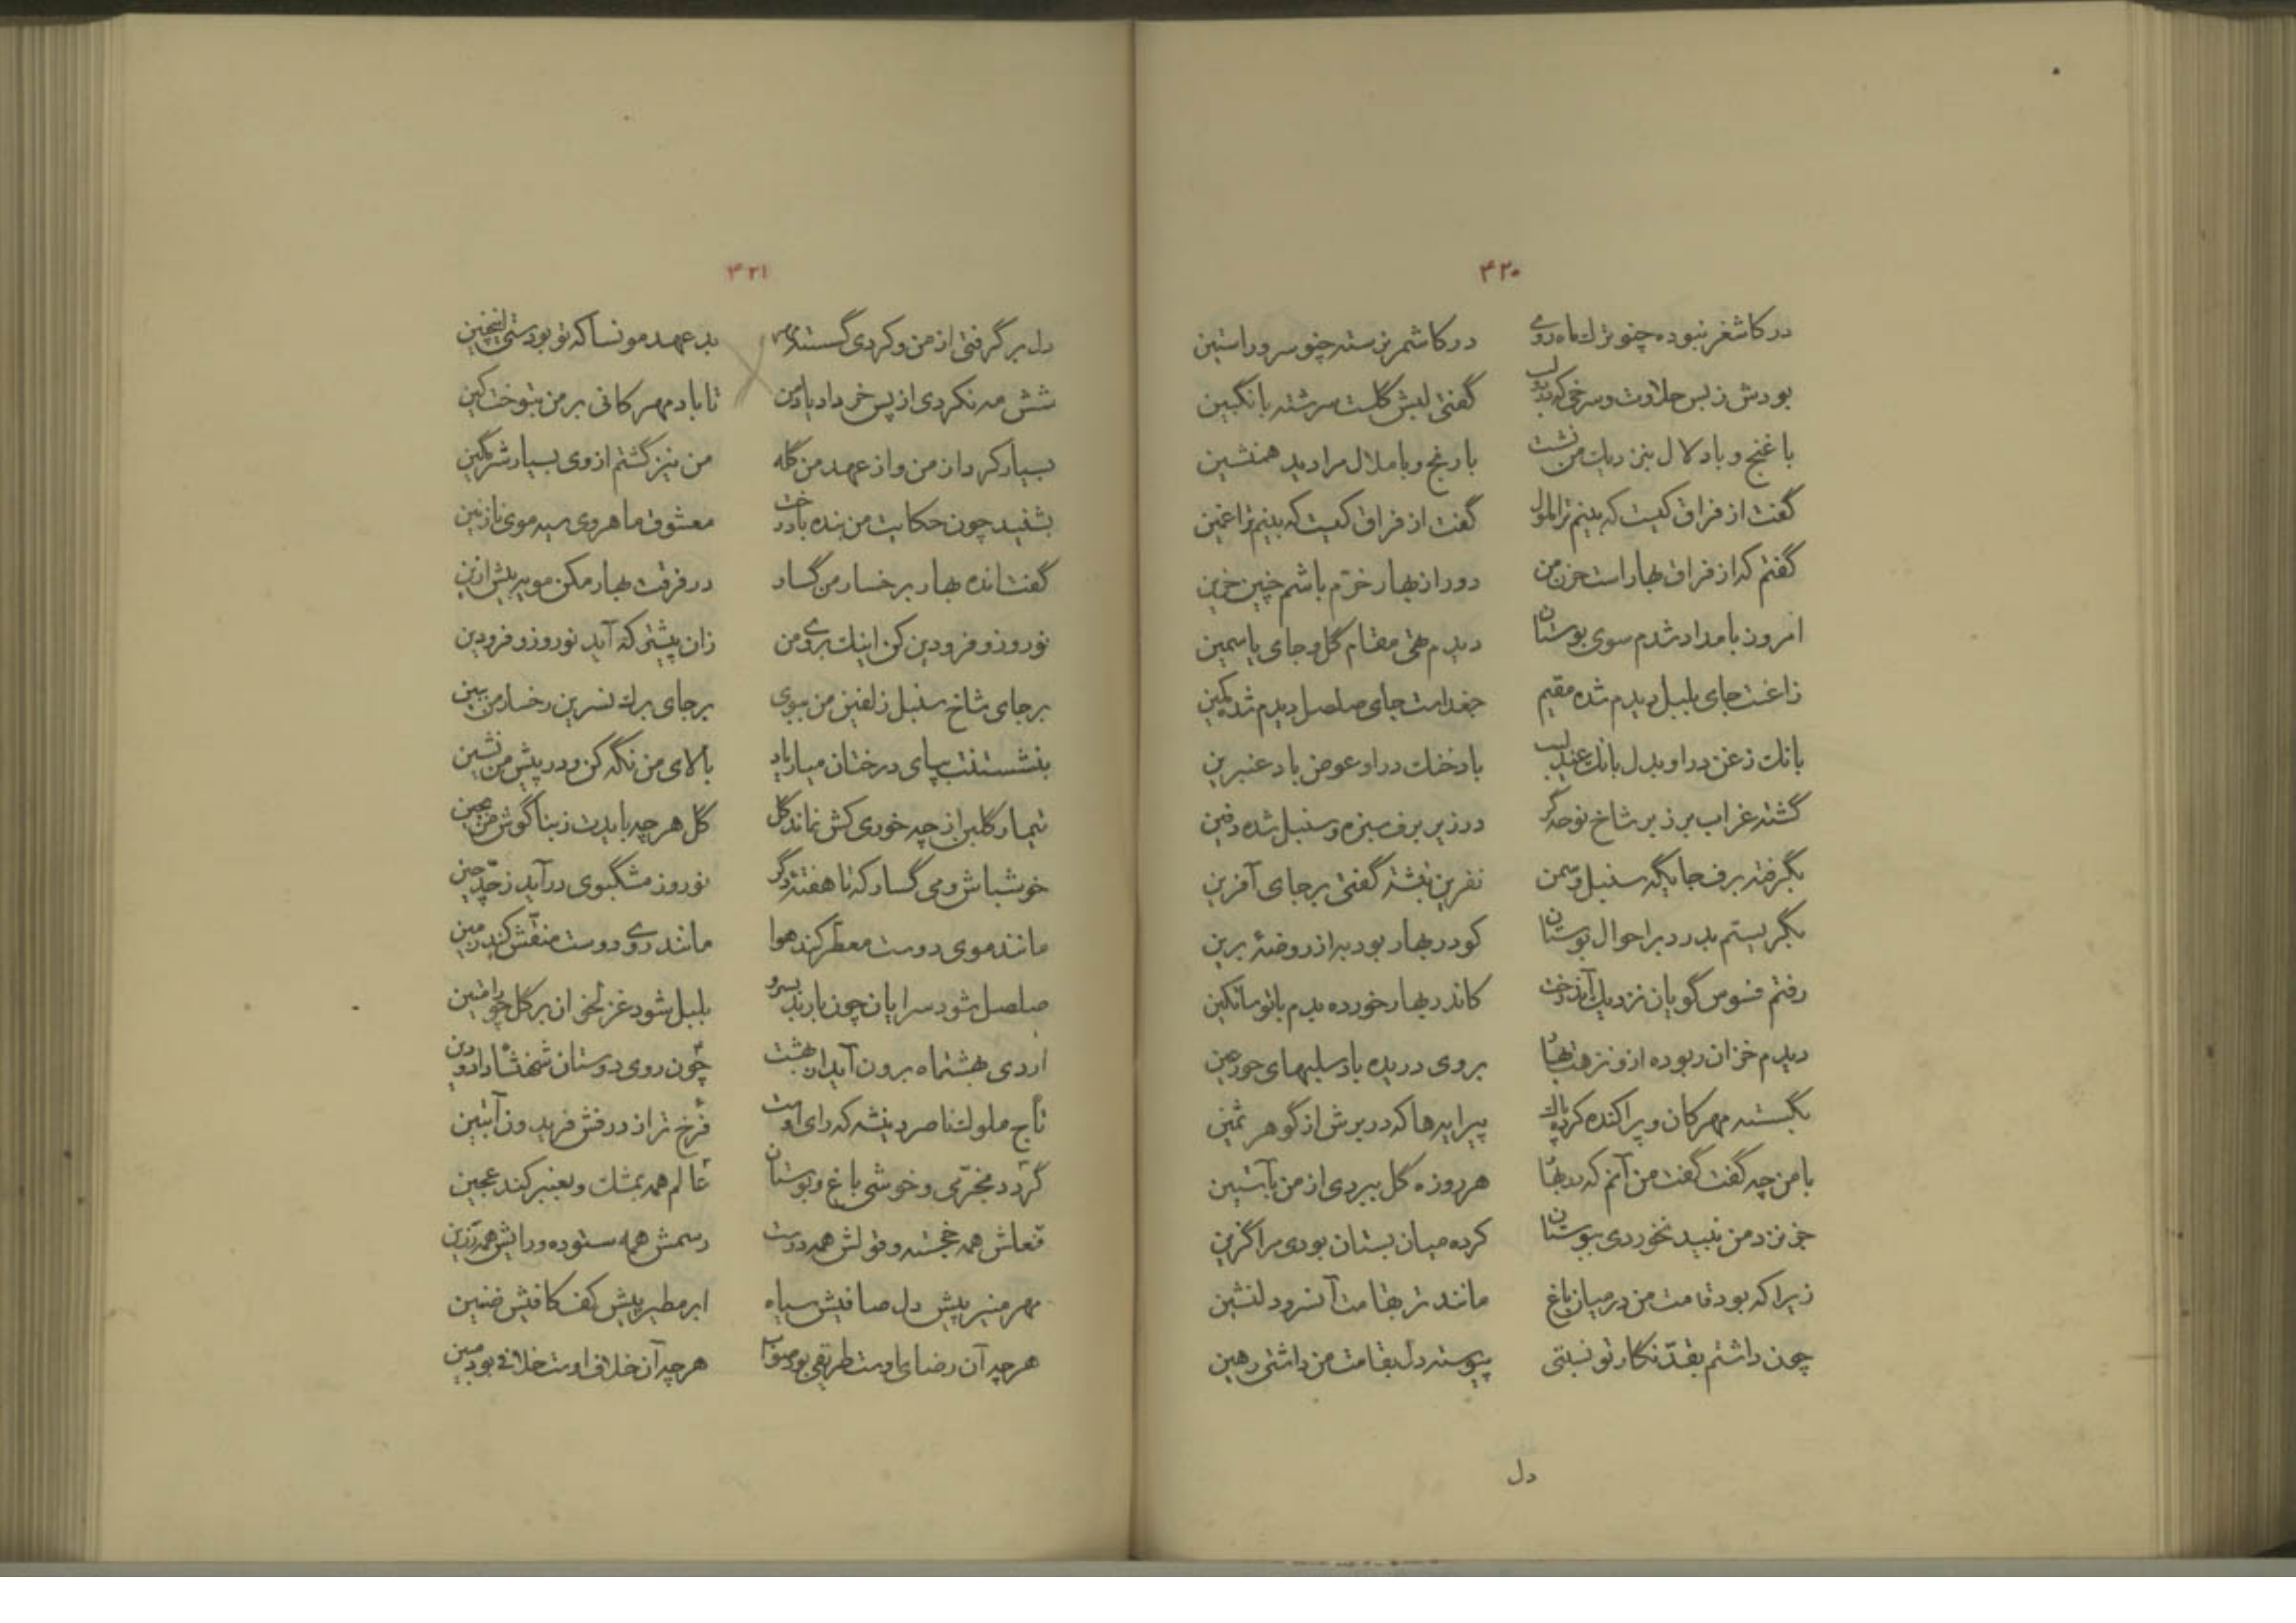 ۴۲۰
در کاشغر نبوده چنو ترك ماه روی در کاشمر نرسته چنو سرو راستین
بودش ز بس حلاوت و سرخی که بد لب گفتی لبش گلست سرشته بانگبین
با غنج و با دلال بنزدیك من نشست با رنج و با ملال مرا دید همنشین
گفت از فراق کیست که بینم ترا ملول گفت از فراق کیست که بینم ترا غمین
گفتم که از فراق بهار است حزن من دور از بهار خرّم باشم چنین حزین
امروز بامداد شدم سوی بوستان دیدم تهی مقام گل و جای یاسمین
زاغست جای بلبل دیدم شده مقیم جغد است جای صلصل دیدم شده مکین
بانك زغن در او بدل بانك عندلیب باد خنك در او عوض باد عنبرین
گشته غراب بر زبر شاخ نوحه گر در زیر برف سبزه و سنبل شده دفین
بگرفته برف جایگه سنبل و سمن نفرین نبشته گفتی بر جای آفرین
بگریستم بدرد بر احوال بوستان کو در بهار بود به از روضهٔ برین
رفتم فسوس گویان نزدیك آندرخت کاندر بهار خورده بدم با تو ساتکین
دیدم خزان ربوده ازو نزهت بهار بروی دریده باد سلبهای حور عین
بگسسته مهرکان و پراکنده کرده پاك پیرایه ها که در برش از گوهر ثمین
با من چه گفت گفت من آنم که در بهار هر روزه گل ببردی از من بآستین
جز نزد من نبید نخوردی ببوستان کرده میان بستان بودی مرا گزین
زیرا که بود قامت من در میان باغ ماننده تر بقامت آنسرو دلنشین
چون داشتم بقدّ نگار تو نسبتی پیوسته دل بقامت من داشتی رهین
دل
۴۲۱
دل بر گرفتی از من و کردی گسسته مهر بد عهد مونسا که تو بودستی اینچنین
شش مه نکردی از پس خرداد یاد من تا باد مهرکانی بر من بتوخت کین
بسیار کرد از من و از عهد من گله من نیز گشتم از وی بسیار شرمگین
بشنید چون حکایت من بنده با درخت معشوق ماهروی سیه موی نازنین
گفت انده بهار بر خسار من گسار در فرقت بهار مکن مویه بیش ازین
نوروز و فرودین کن اینك بروی من زان پیشتر که آید نوروز و فرودین
بر جای شاخ سنبل زلفین من ببوی بر جای برك نسرین رخسار من ببین
بنشستنت بپای درختان مباد یاد بالای من نگه کن و در پیش من نشین
تیمار گلبن از چه خوری کش نماند گل گل هر چه بایدت ز بناگوش من بچین
خوشباش و می گسار که تا هفتهٔ دگر نوروز مشکبوی در آید ز حدّ چین
مانند موی دوست معطّر کند هوا مانند روی دوست منقّش کند زمین
صلصل شود سرایان چون باربد بسرو بلبل شود غزلخوان بر گل چو رامتین
اردی بهشتماه برون آید از بهشت چون روی دوستان شهنشاه رادو دین
تاج ملوك ناصر دین شه که رای اوست فرّخ تر از درفش فریدون آبتین
گردد بخرّمی و خوشی باغ و بوستان عالم همه بمشك و بعنبر کند عجین
فعلش همه خجسته و قولش همه درست رسمش همه ستوده و رایش همه رزین
مهر منیر پیش دل صافیش سیاه ابر مطیر پیش کف کافیش ضنین
هر چه آن رضای اوست طریقی بود صواب هر چه آن خلاف اوست خلافی بود مبین